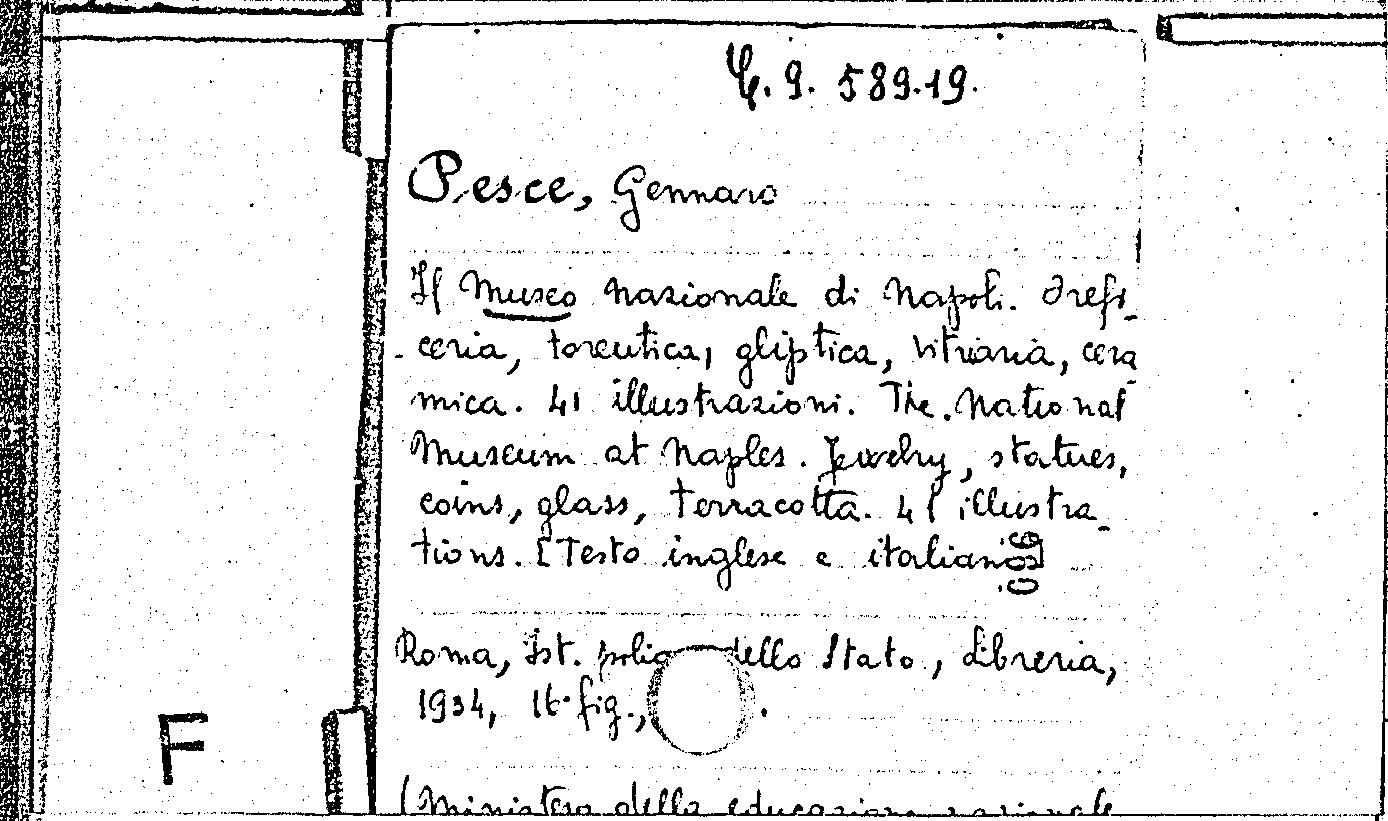 C. 9. 589.19.
Pesce, Gennaro
Il Museo nazionale di Napoli. Orefi-
ceria, toreutica, gliptica, vitriaria, cera-
mica. 41 illustrazioni. The National
Museum at Naples. Jewelry, statues,
coins, glass, terracotta. 41 illustra-
tions. [Testo inglese e italiano]
Roma, Ist. polig dello Stato, Libreria,
1934, 16° fig.,
(Ministero della educazione nazionale
F